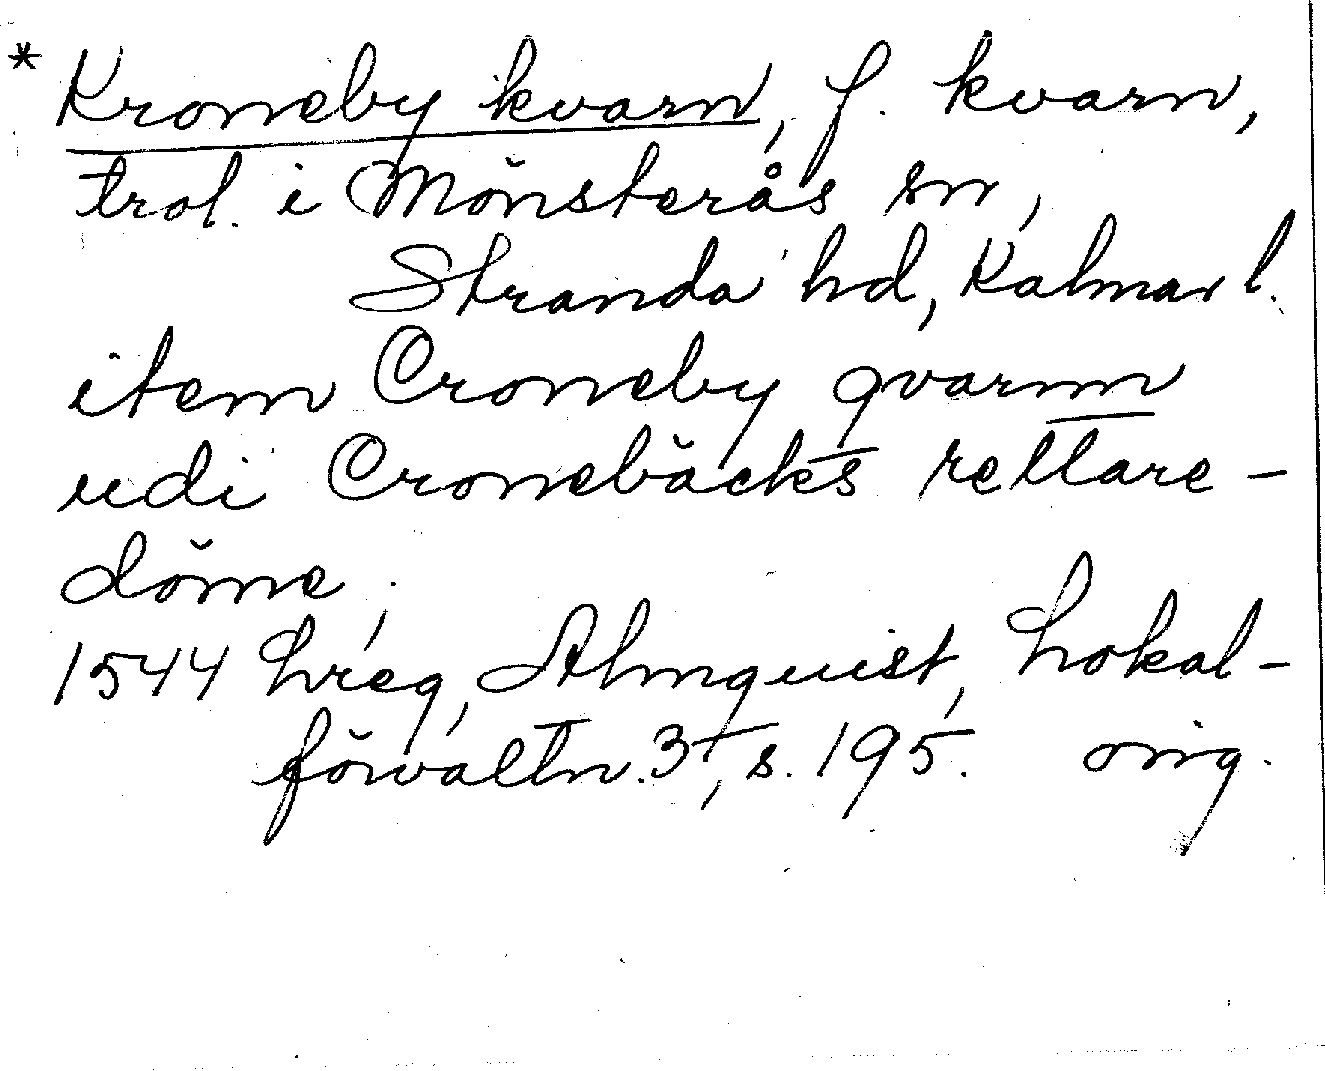 * Kroneby kvarn, f. kvarn,
trol. i Mönsterås sn,
Stranda hd, Kalmar l.
item Croneby qvarnn
udi Cronebäcks rettare-
döme,
1544 hreg, Almquist, Lokal-
förvaltn. 3, s. 195. orig.